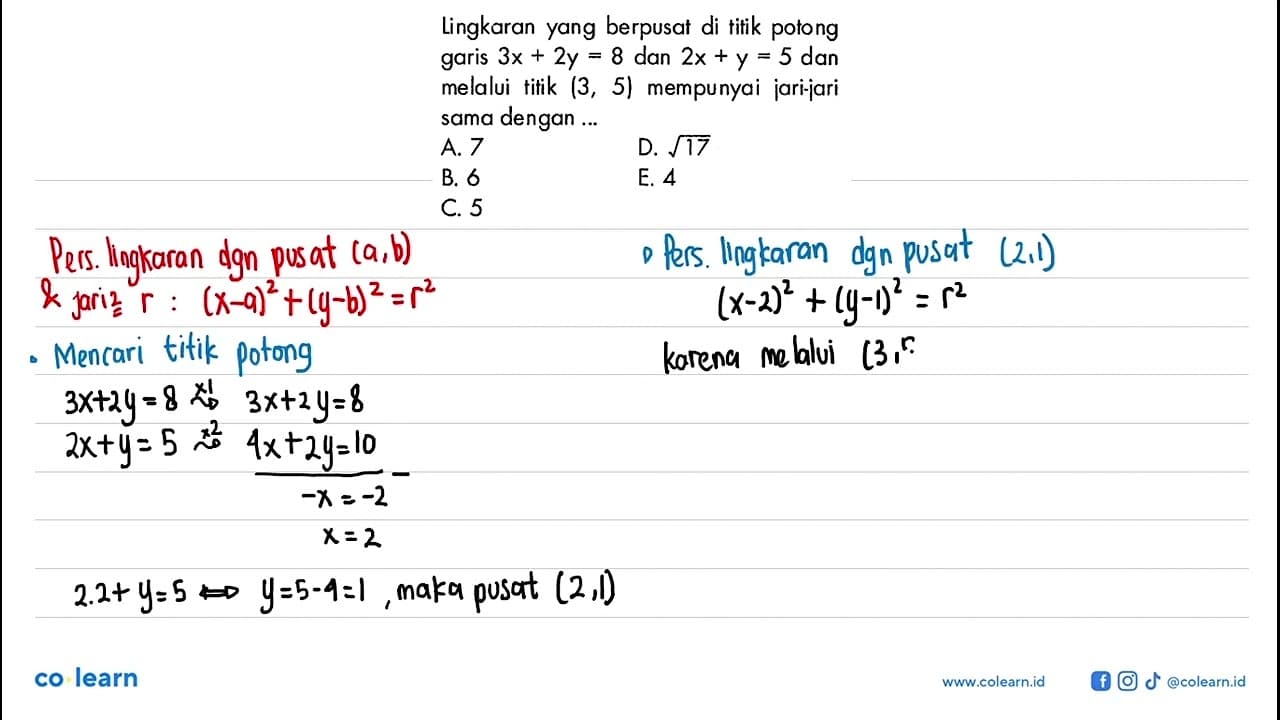 Lingkaran yang berpusat di titik potong
garis 3x + 2y = 8 dan 2x + y = 5 dan
melalui titik (3, 5) mempunyai jari-jari
sama dengan ...
A. 7
D. √17
B. 6
E. 4
C. 5
Pers. lingkaran dgn pusat (a,b)
& jari2 r : (x-a)² + (y-b)² = r²
• Mencari titik potong
3x+2y=8 ×1 3x+2y=8
2x+y=5 ×2 4x+2y=10
-
-x = -2
x = 2
2.2+ y=5 ⇔ y=5-4=1 , maka pusat (2,1)
Pers. lingkaran dgn pusat (2,1)
(x-2)² + (y-1)² = r²
karena melalui (3,
co learn
www.colearn.id
@colearn.id